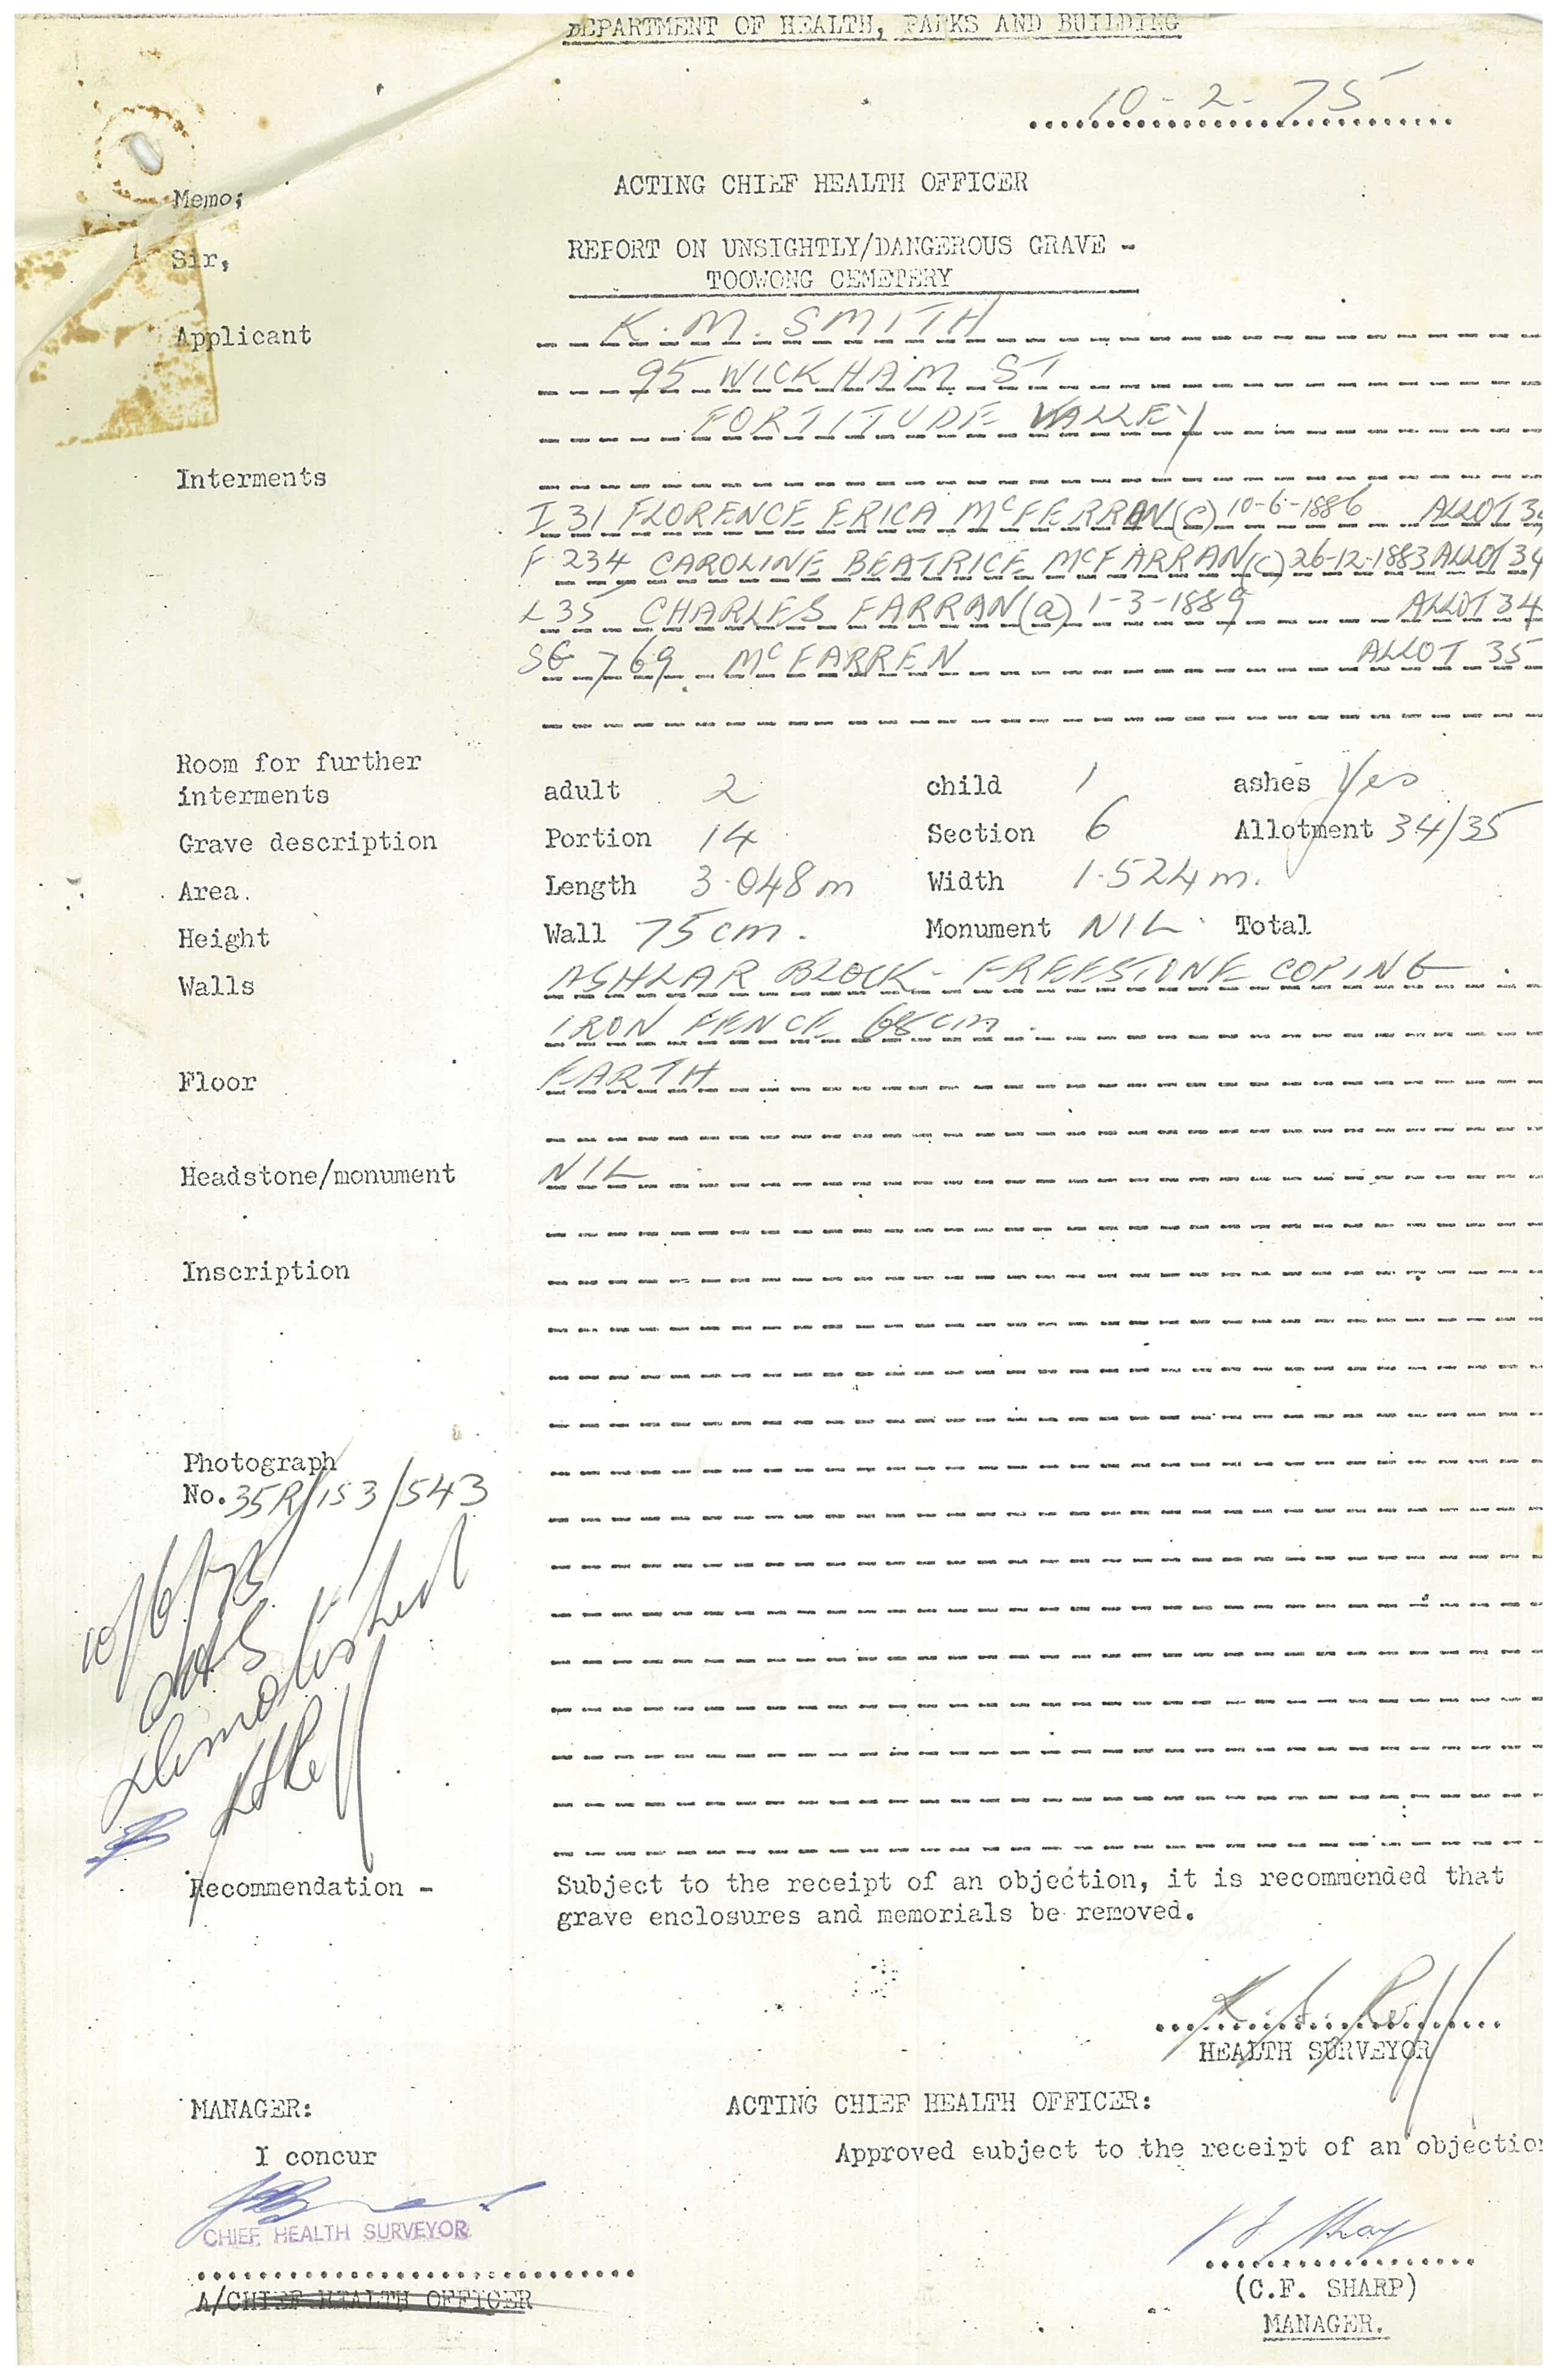 DEPARTMENT OF HEALTH, PARKS AND BUILDING
10-2-75
ACTING CHIEF HEALTH OFFICER
Memo;
Sir,
REPORT ON UNSIGHTLY/DANGEROUS GRAVE -
TOOWONG CEMETERY
Applicant K.M. SMITH
95 WICKHAM ST
FORTITUDE VALLEY
Interments
I 31 FLORENCE ERICA McFERRAN (c) 10-6-1886 ALLOT 34
F 234 CAROLINE BEATRICE McFARRAN (c) 26-12-1883 ALLOT 34
L 35 CHARLES FARRAN (a) 1-3-1889 ALLOT 34
SG 769 McFARREN ALLOT 35
Room for further
interments adult 2 child 1 ashes Yes
Grave description Portion 14 Section 6 Allotment 34/35
Area. Length 3.048m Width 1.524m.
Height Wall 75cm. Monument NIL Total
Walls ASHLAR BLOCK - FREESTONE COPING
IRON FENCE 68cm.
Floor EARTH
Headstone/monument NIL
Inscription
Photograph
No. 35R/153/543
10/6/75
demolished
Recommendation - Subject to the receipt of an objection, it is recommended that
grave enclosures and memorials be removed.
HEALTH SURVEYOR
MANAGER: ACTING CHIEF HEALTH OFFICER:
I concur Approved subject to the receipt of an objectio
CHIEF HEALTH SURVEYOR
A/CHIEF HEALTH OFFICER
(C.F. SHARP)
MANAGER.